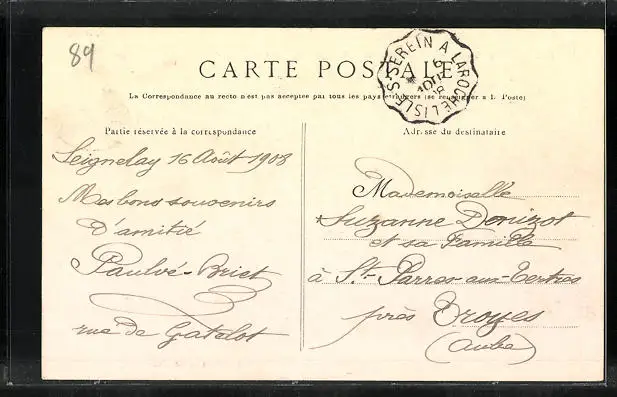 89
CARTE POSTALE
La Correspondance au recto n'est pas acceptée par tous les pays étrangers (se renseigner à l. Poste)
L'ISLE-S-SEREIN A LAROCHE
16
AOUT
08
Partie réservée à la correspondance
Seignelay 16 Août 1908
Mes bons souvenirs
D'amitié
Paulvé-Briet
rue De Gatelot
Adresse du destinataire
Mademoiselle
Suzanne Denizot
et sa Famille
à St-Parres-aux-Tertres
près Troyes
(Aube)